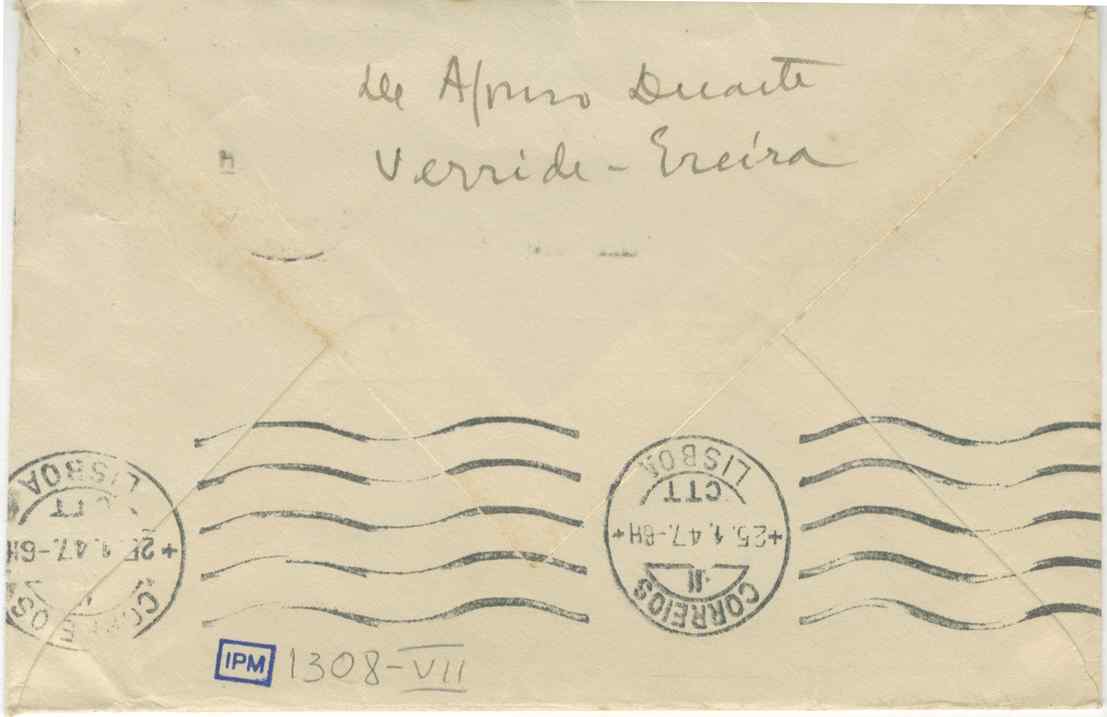 de Afonso Duarte
Verride - Ereira
LISBOA
CTT
+25.1.47.-6H
CORREIOS
LISBOA
CTT
+25.1.47.-6H+
II
CORREIOS
IPM 1308-VII